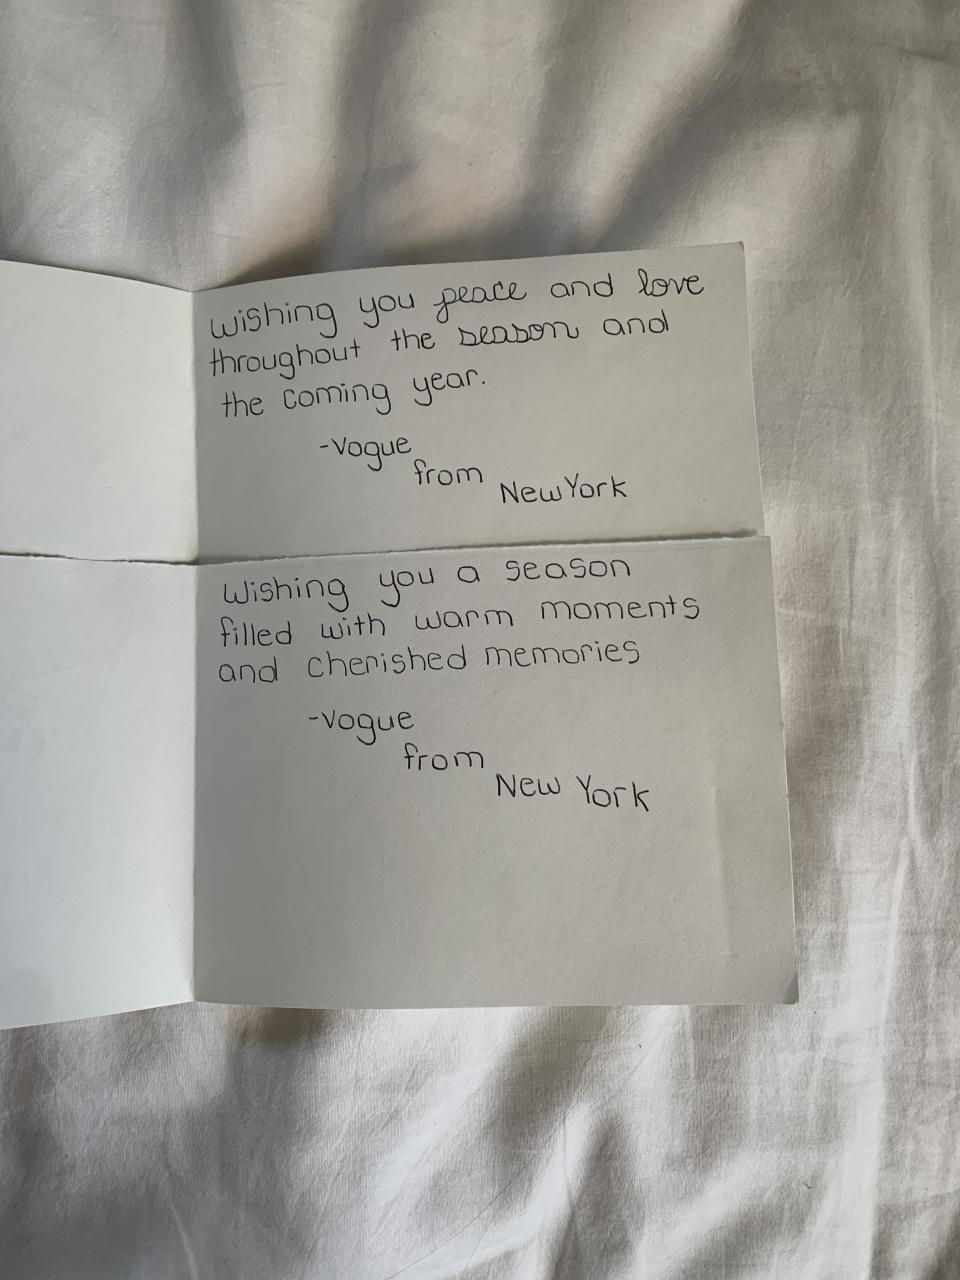 Wishing you peace and love
throughout the season and
the coming year.
-Vogue
from
New York
Wishing you a season
filled with warm moments
and cherished memories
-Vogue
from
New York